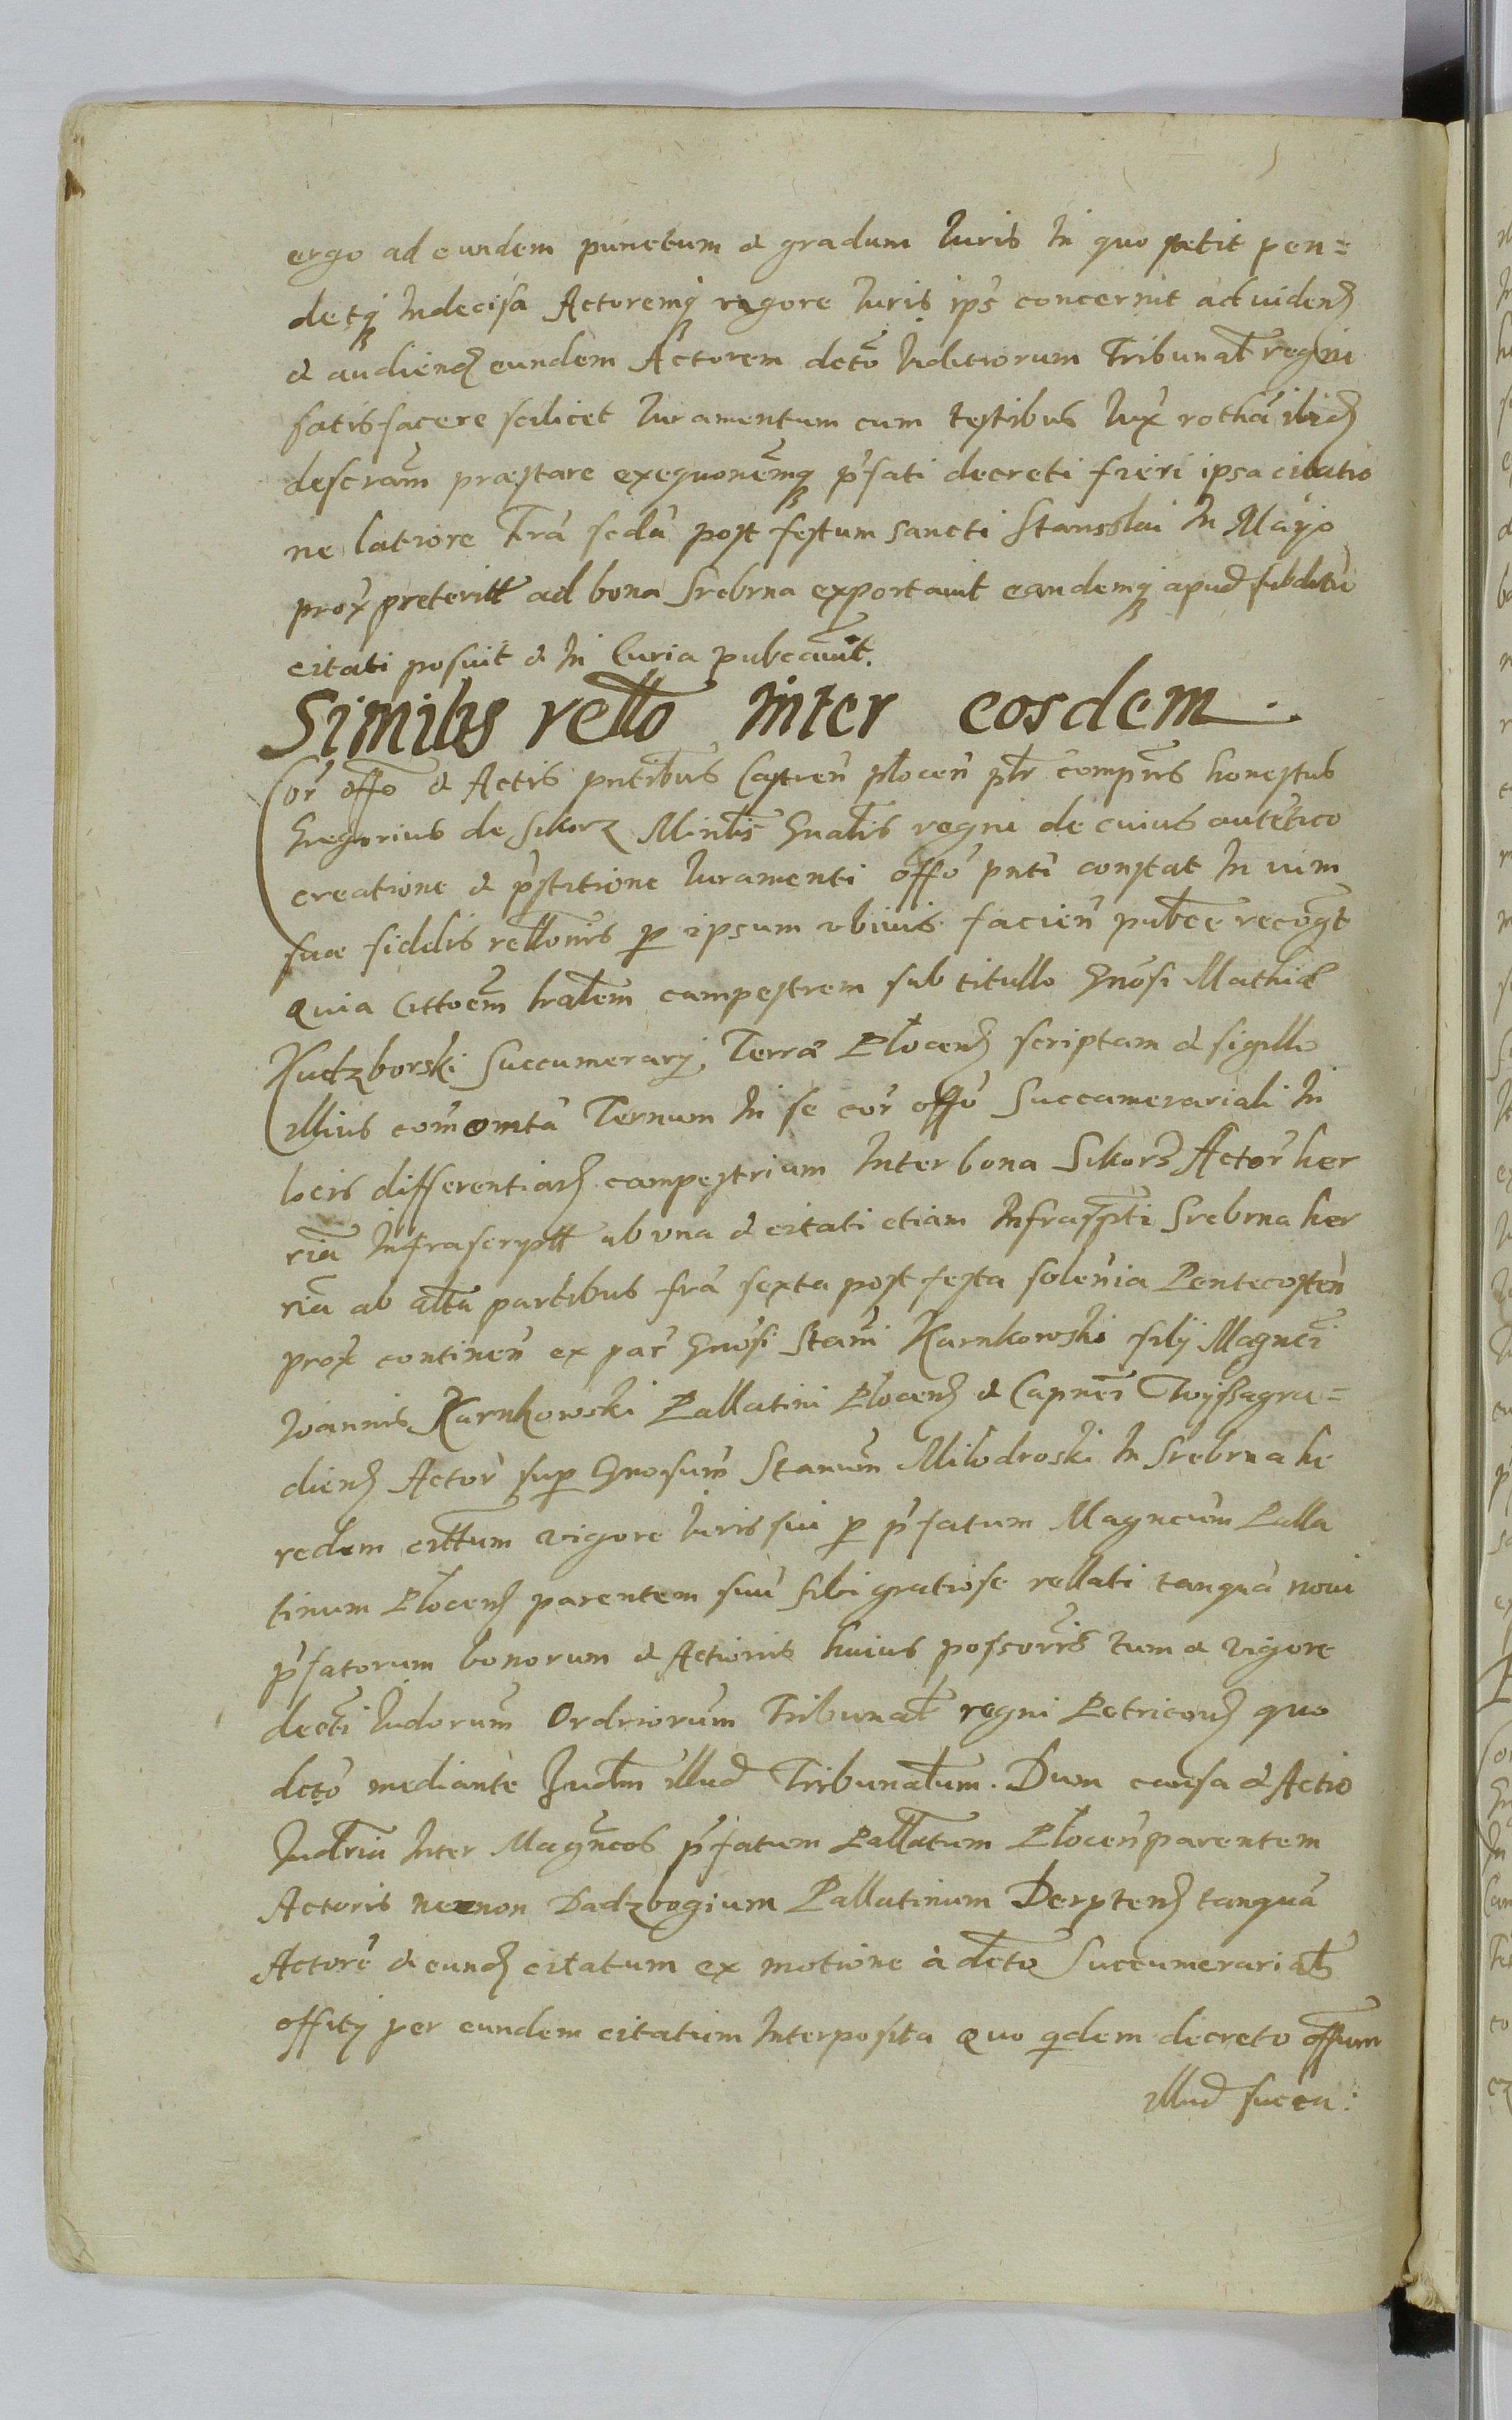 ergo ad eundem punctum & gradum Iuris In quo stetit pen=
detq Indecisa Actoremq vigore Iuris ips concernit ad videnđ
& audienđ eundem Actorem dcto Iuditiorum Tribunał regni
satisfacere scilicet Iuramentum cum testibus Iux rotha ibiđ
descram præstare exequonemq pfati decreti fieri ipsa citatio
ne latiore Fra scda post festum sancti Stanislai In Mayo
prox preteritt ad bona Srebrna exportauit eandemq apud subditu
citati posuit & In Curia pubcauit.
Similis rello Inter eosdem
Cor offo & Actis pntibus Castren płocen płr compns honestus
Gregorius de Sikorz Mintis Gnalis regni de cuius autetico
creatione & pstitione Iuramenti offo pnti constat In vim
suæ fidelis rellonis p ipsum vbiuis facien pubce recogt
Quia Cittoem łralem campestrem sub titullo Gnosi Mathiæ
Kudzborski Succumerarij Terræ Płocenś scriptam & sigillo
illius com Ternum In se cor offo Succamerariali In
locis differentiarś campestrium Inter bona Sikorz Actor her
ria Infrascriptt ab vna & citati etiam Infrascpti Srebrna her
ria ab alta partibus fra sexta post festa solenia Pentecosten
prox continen ex par Gnosi Stani Karnkowski filij Magnci
Ioannis Karnkowski Pallatini Płocenś & Capnei Wyssagra=
dienś Actor sup Gnosum Stanum Milodroski In Srebrna he
redem cittum vigore Iuris sui p pfatum Magncum Palla
tinum Płocenś parentem suu sibi gratiose rellati tanqua noui
pfatorum bonorum & Actionis huius possorris tum & vigore
decti Iudorum Ordriorum Tribunał regni Petriconś quo
dcto mediante Judm illud Tribunatum. Dum causa & Actio
Iudria Inter Magncos pfatum Pallatum Płocen parentem
Actoris necnon Dadzbogium Pallatinum Derptenś tanqua
Actore & eunđ citatum ex motione à dcto Succumerariał
offity per eundem citatum Interposita Quo qdem decreto offum
illud succa: